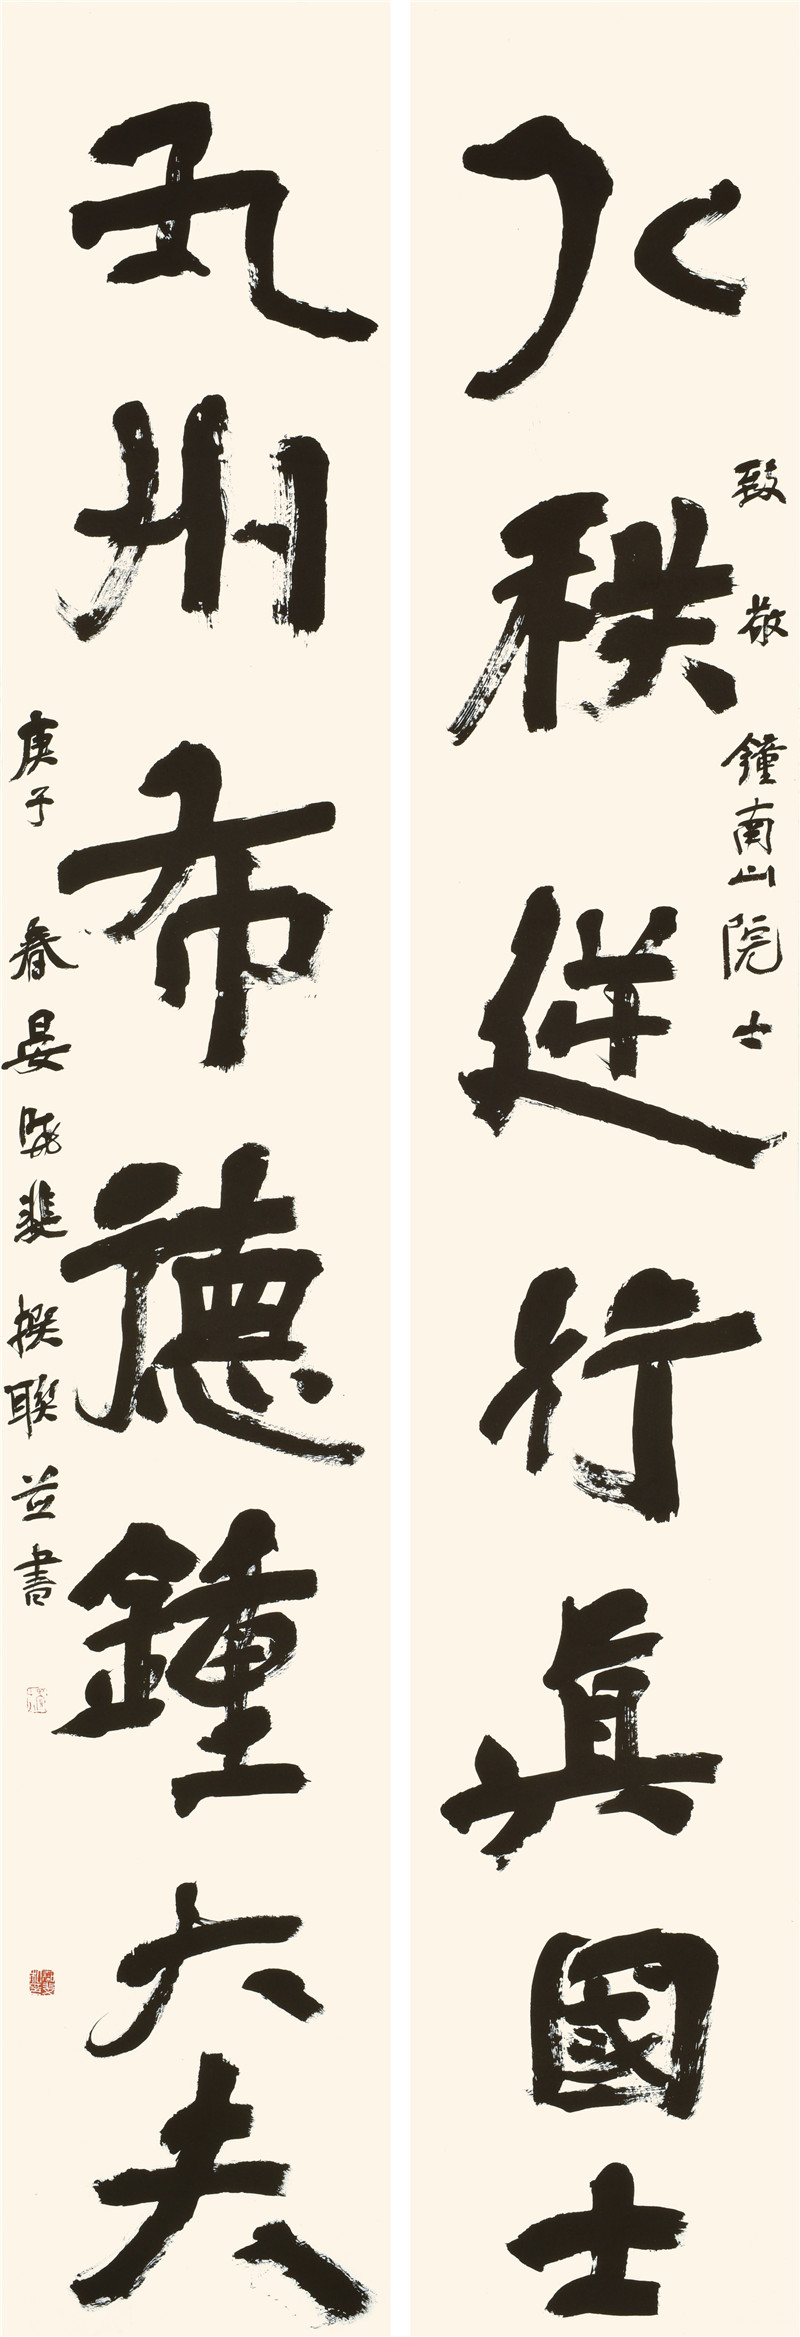 八秩逆行真國士
致敬鐘南山院士
九州布德鍾大夫
庚子春晏曉斐撰聯並書